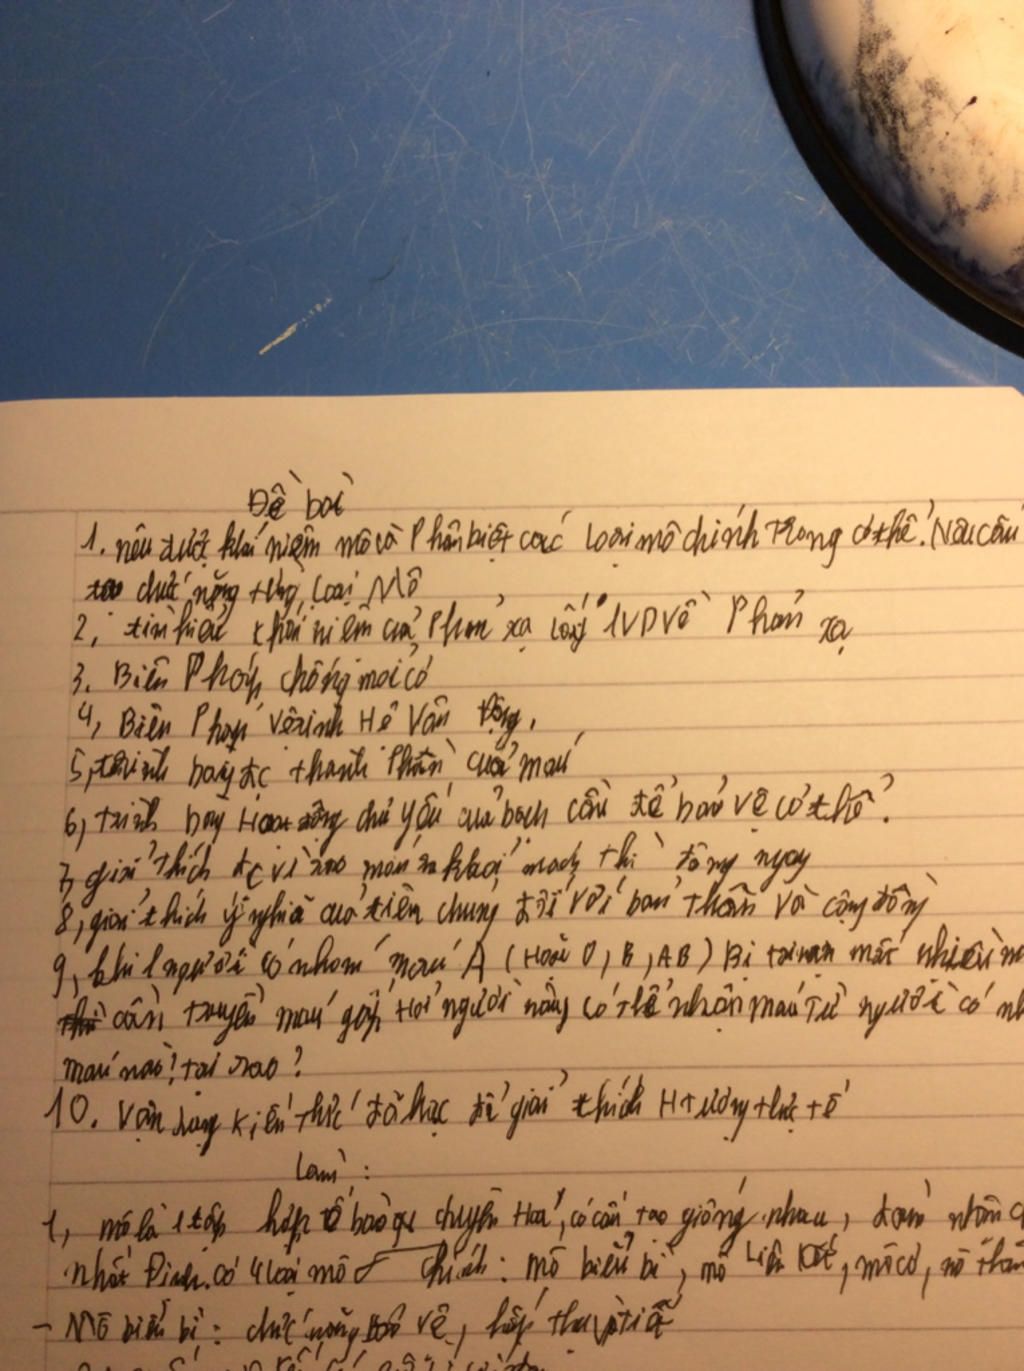 Đề bài
1. nêu được khái niệm mô và Phân biệt các loại mô chính Trong cơ thể. Nêu cấu
tạo chức năng từng loại Mô
2, tìm hiểu khái niệm của Phản xạ lấy 1VD Về Phản xạ
3. Biện Pháp chống mỏi cơ
4, Biện Pháp vệ sinh Hệ Vận động.
5, trình bày đc thành Phần của máu
6, trình bày Hoạt động chủ yếu của bạch cầu để bảo vệ cơ thể?
7, giải thích đc vì sao máu ra khỏi mạch thì đông ngay
8, giải thích ý nghĩa của tiêm chủng đối với bản thân và cộng đồng
9, khi 1 người có nhóm máu A (Hoặc O, B, AB) Bị tai nạn mất nhiều m
cần truyền máu gấp Hỏi người này có thể nhận máu từ người có nh
máu nào? tại sao?
10. Vận dụng kiến thức đã học để giải thích H tượng thực tế
Làm:
1, mô là 1 tập hợp tế bào chuyên Hoá, có cấu tạo giống nhau, đảm nhận c
nhất Định. có 4 loại mô chính: mô biểu bì, mô Liên Kết, mô cơ, mô thần
- Mô biểu bì: chức năng bảo vệ, hấp thụ, tiết